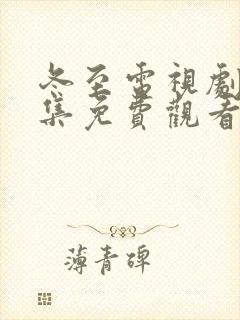 冬至電視劇
集免費觀看
薄青碑